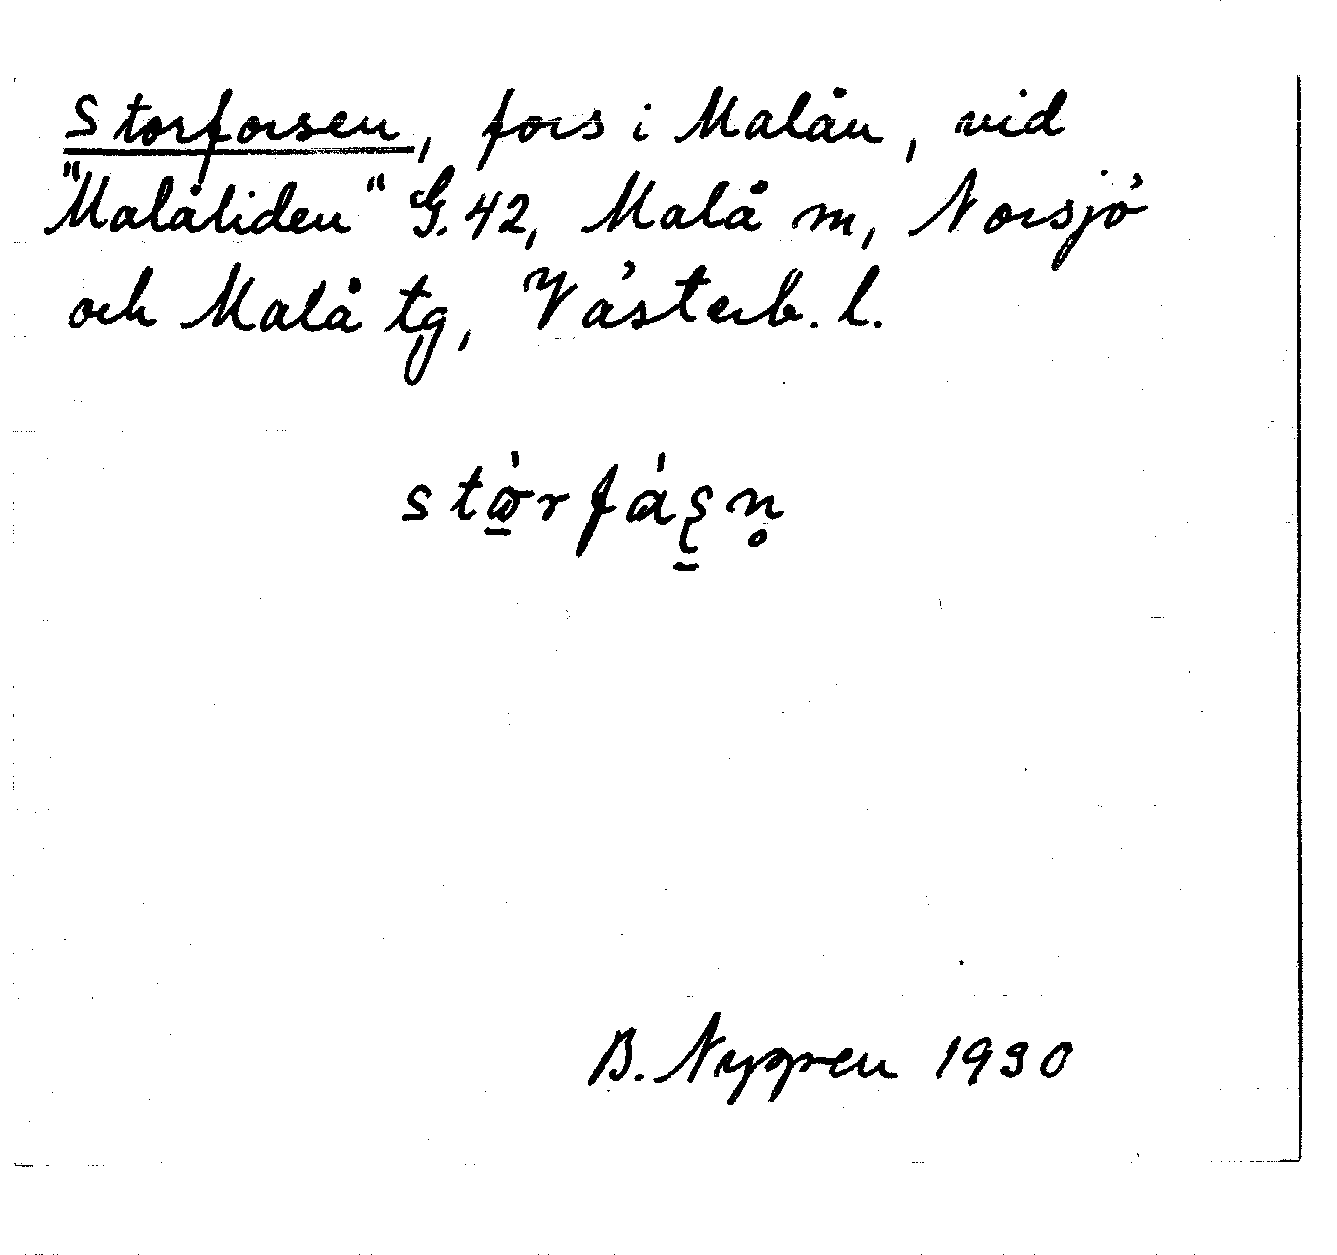 Storforsen, fors i Malån, vid
"Malåliden" G. 42, Malå m, Norsjö
och Malå tg, Västerb. l.
B. Nygren 1930